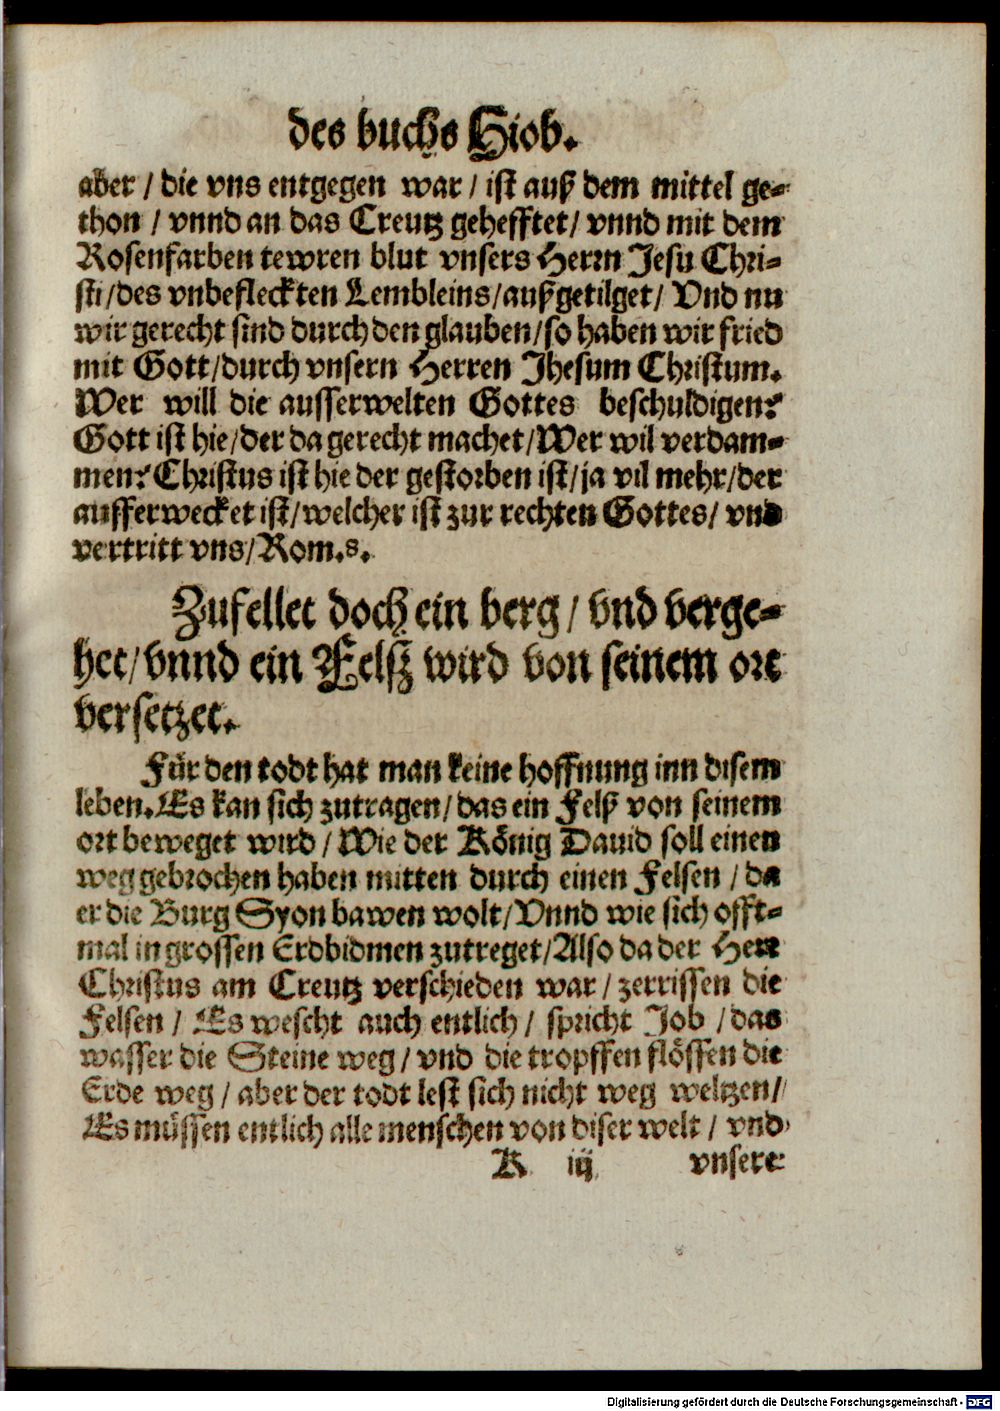 des buchs Hiob.
aber / die vns entgegen war / ist auß dem mittel ge-
thon / vnnd an das Creutz gehefftet / vnnd mit dem
Rosenfarben tewren blut vnsers Herrn Jesu Chri-
sti / des vnbefleckten Lembleins / außgetilget / Vnd nu
wir gerecht sind durch den glauben / so haben wir fried
mit Gott / durch vnsern Herren Jhesum Christum.
Wer will die ausserwelten Gottes beschuldigen?
Gott ist hie / der da gerecht machet / Wer wil verdam-
men? Christus ist hie der gestorben ist / ja vil mehr / der
aufferwecket ist / welcher ist zur rechten Gottes / vnd
vertritt vns / Rom. 8.
Zufellet doch ein berg / vnd verge-
het / vnnd ein Felsz wird von seinem ort
versetzet.
Für den todt hat man keine hoffnung inn disem
leben. Es kan sich zutragen / das ein Felß von seinem
ort beweget wird / Wie der König Dauid soll einen
weg gebrochen haben mitten durch einen Felsen / da
er die Burg Syon bawen wolt / Vnnd wie sich offt-
mal in grossen Erdbidmen zutreget / Also da der Herr
Christus am Creutz verschieden war / zerrissen die
Felsen / Es wescht auch entlich / spricht Job / das
wasser die Steine weg / vnd die tropffen flössen die
Erde weg / aber der todt lest sich nicht weg weltzen /
Es müssen entlich alle menschen von diser welt / vnd
K iij vnsere
Digitalisierung gefördert durch die Deutsche Forschungsgemeinschaft - DFG